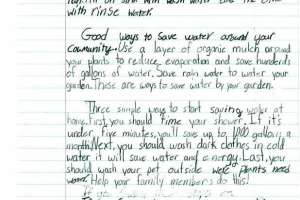 with rinse water.
Good ways to save water around your
community. Use a layer of organic mulch around
your plants to reduce evaporation and save hundreds
of gallons of water. Save rain water to water your
garden. These are ways to save water by your garden.
Three simple ways to start saving water at
home. First, you should time your shower. If it's
under five minutes, you'll save up to 1,000 gallons a
month. Next, you should wash dark clothes in cold
water it will save water and energy. Last, you
should wash your pet outside were plants need
water. Help your family members do this!